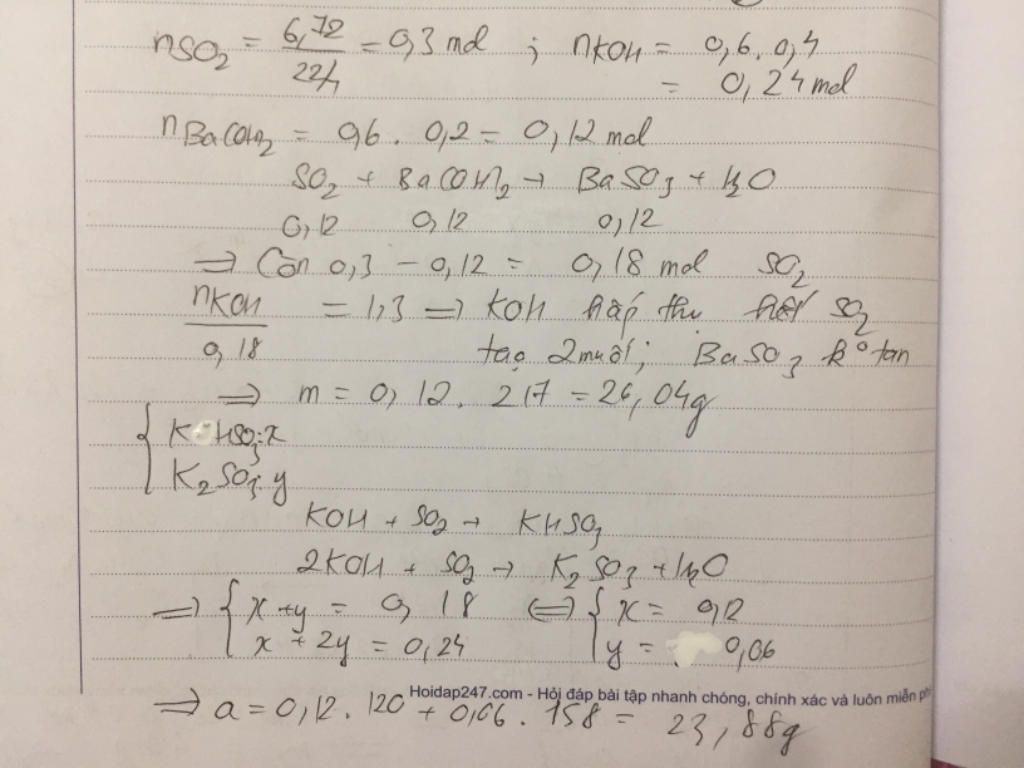 nSO₂ = 6,72/22,4 = 0,3 mol ; nKOH = 0,6.0,4
= 0,24 mol
nBa(OH)₂ = 0,6 . 0,2 = 0,12 mol
SO₂ + Ba(OH)₂ → BaSO₃ + H₂O
0,12 0,12 0,12
⇒ Còn 0,3 - 0,12 = 0,18 mol SO₂
nKOH/0,18 = 1,3 ⇒ KOH hấp thụ hết SO₂
tạo 2 muối; BaSO₃ k° tan
⇒ m = 0,12 . 217 = 26,04g
{ KHSO₃: x
K₂SO₃: y
KOH + SO₂ → KHSO₃
2KOH + SO₂ → K₂SO₃ + H₂O
⇒ { x + y = 0,18 ⇔ { x = 0,12
x + 2y = 0,24 y = 0,06
Hoidap247.com - Hỏi đáp bài tập nhanh chóng, chính xác và luôn miễn ph
⇒ a = 0,12 . 120 + 0,06 . 158 = 23,88g